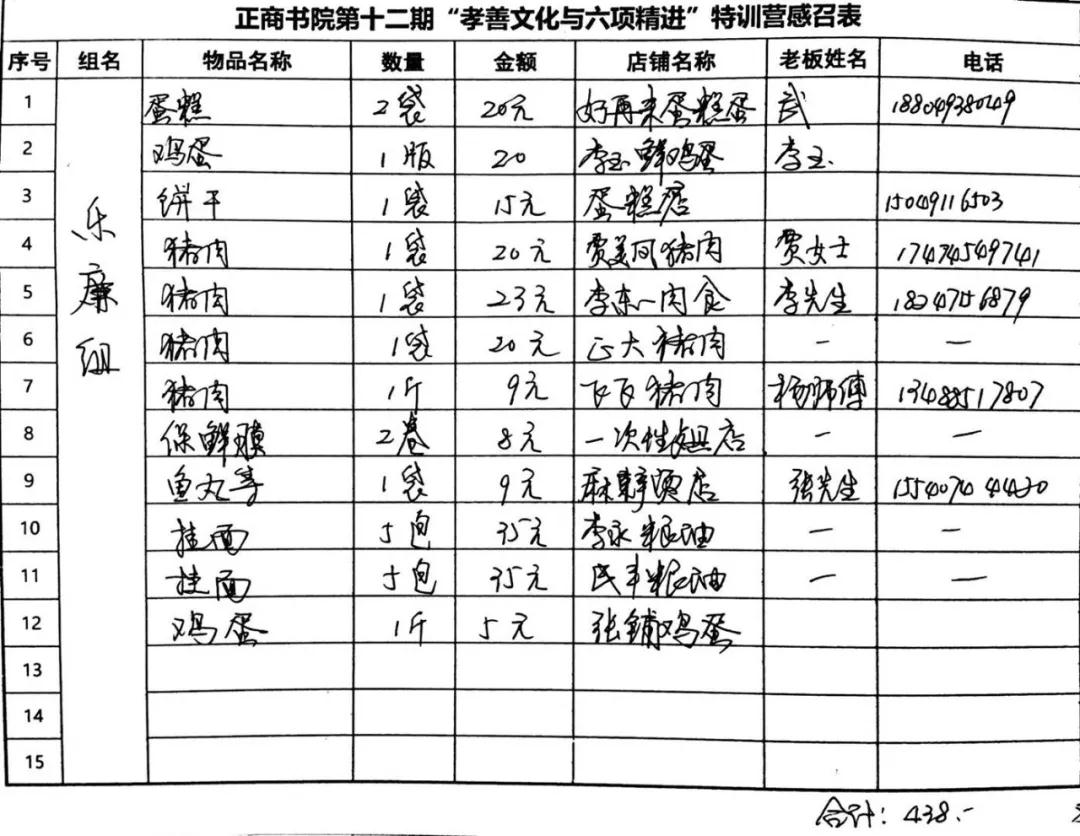 正商书院第十二期“孝善文化与六项精进”特训营感召表
序号 组名 物品名称 数量 金额 店铺名称 老板姓名 电话
乐廉组
1 蛋糕 2袋 20元 好再来蛋糕蛋 武 18804938049
2 鸡蛋 1版 20 李玉鲜鸡蛋 李玉
3 饼干 1袋 15元 蛋糕店 15049116503
4 猪肉 1袋 20元 贾美凤猪肉 贾女士 17474549741
5 猪肉 1袋 23元 李东一肉食 李先生 18247156879
6 猪肉 1袋 20元 正大猪肉 — —
7 猪肉 1斤 9元 飞飞猪肉 杨师傅 13488517807
8 保鲜膜 2卷 8元 一次性 店 — —
9 鱼丸等 1袋 9元 麻辣 店 张先生 15540744420
10 挂面 5包 35元 李永粮油 — —
11 挂面 5包 35元 民丰粮油 — —
12 鸡蛋 1斤 5元 张铺鸡蛋
13
14
15
合计：438.-